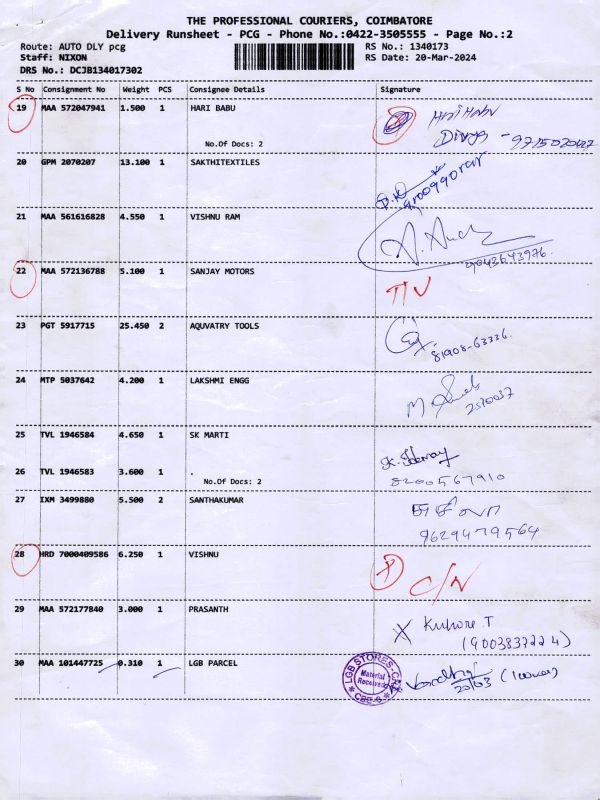 THE PROFESSIONAL COURIERS, COIMBATORE
Delivery Runsheet - PCG - Phone No.:0422-3505555 - Page No.:2
Route: AUTO DLY pcg
RS No.: 1340173
Staff: NIXON
RS Date: 20-Mar-2024
DRS No.: DCJB134017302
S No Consignment No Weight PCS Consignee Details Signature
19 MAA 572047941 1.500 1 HARI BABU
No.Of Docs: 2
Divya - 9715020427
20 GPM 2070207 13.100 1 SAKTHITEXTILES
21 MAA 561616828 4.550 1 VISHNU RAM
9043643976.
22 MAA 572136788 5.100 1 SANJAY MOTORS
23 PGT 5917715 25.450 2 AQUVATRY TOOLS
81908-63336.
24 MTP 5037642 4.200 1 LAKSHMI ENGG
2570037
25 TVL 1946584 4.650 1 SK MARTI
26 TVL 1946583 3.600 1 .
No.Of Docs: 2
8200567910
27 IXM 3499880 5.500 2 SANTHAKUMAR
9629479564
28 HRD 7000409586 6.250 1 VISHNU
C/N
29 MAA 572177840 3.000 1 PRASANTH
X Kishore T
(9003837224)
30 MAA 101447725 0.310 1 LGB PARCEL
LGB STORES-
Material
Received
CBE-6
20/03